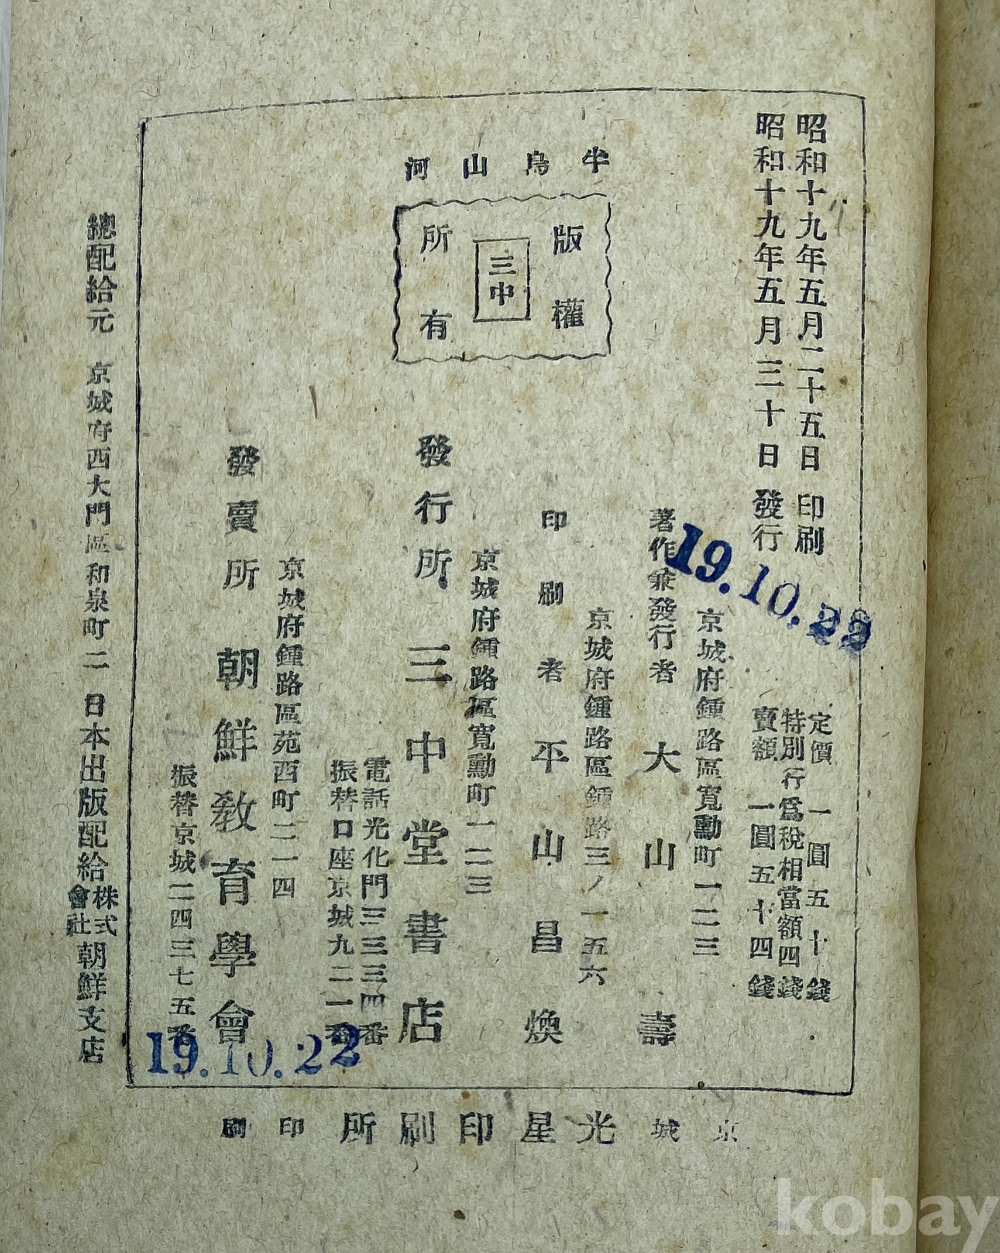 昭和十九年五月二十五日 印刷
昭和十九年五月三十日 發行
定價 一圓五十錢
特別行爲稅相當額四錢
賣額 一圓五十四錢
19.10.22
半島山河
版權
所有
三中
京城府鍾路區寬勳町一二三
著作兼發行者 大山壽
京城府鍾路區鍾路三ノ一五六
印刷者 平山昌煥
京城府鍾路區寬勳町一二三
發行所 三中堂書店
電話光化門三三三四番
振替口座京城九二一番
京城府鍾路區苑西町二一四
發賣所 朝鮮敎育學會
振替京城二四三七五番
19.10.22
總配給元 京城府西大門區和泉町二 日本出版配給株式會社朝鮮支店
京城 光星印刷所 印刷
kobay